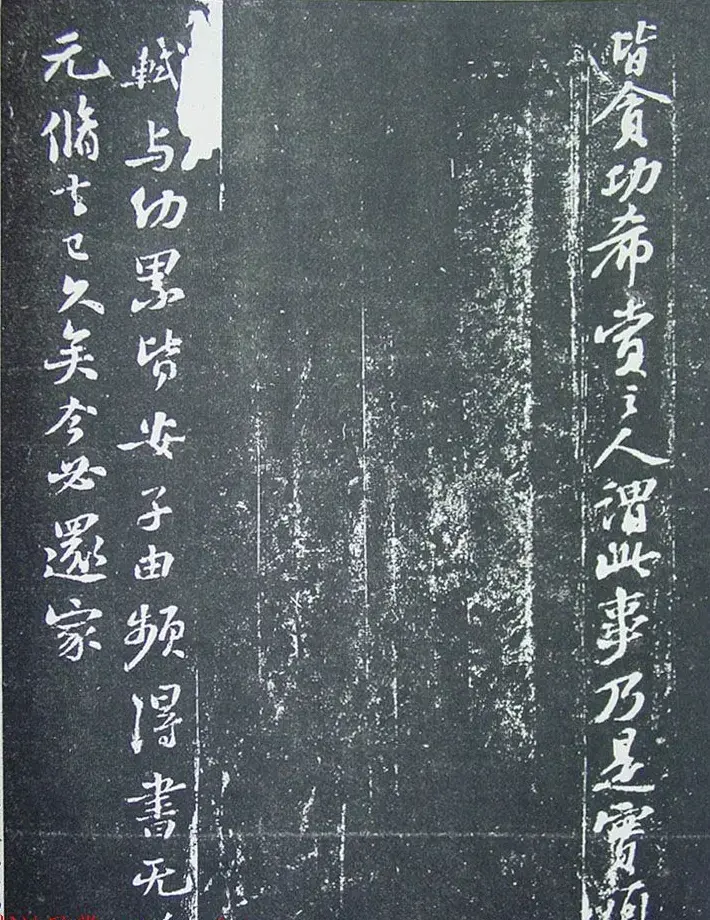 皆貪功希賞之人謂此事乃是實頭
軾与幼累皆安子由頻淂書无
元脩去已久矣今必還家